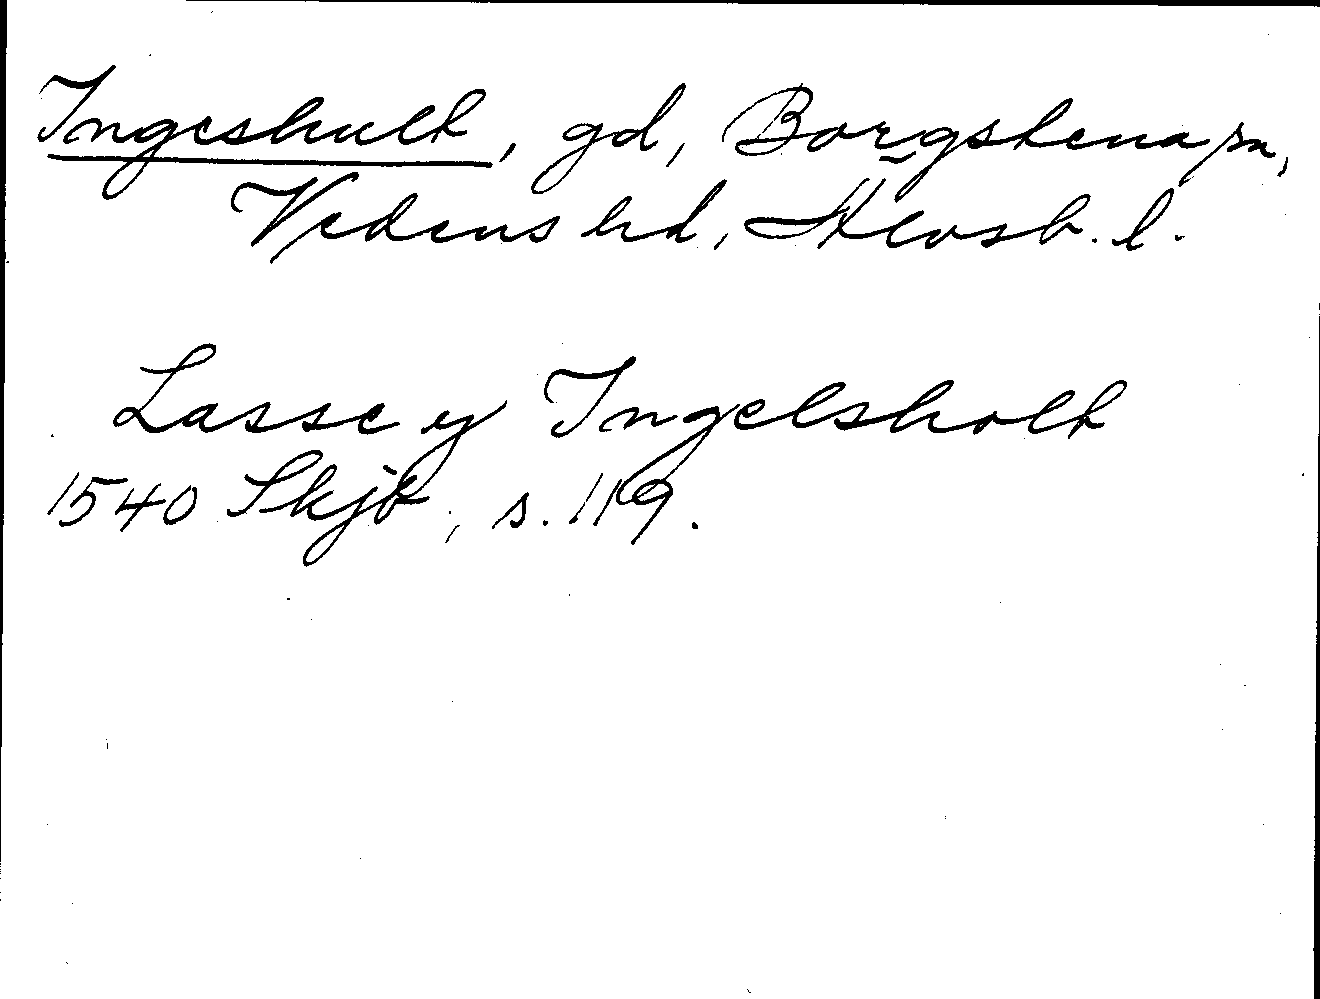 Ingeshult, gd, Borgstena sn,
Vedens hd, Älvsb. l.
Lasse y Ingelsholt
1540 Skjb, s. 119.